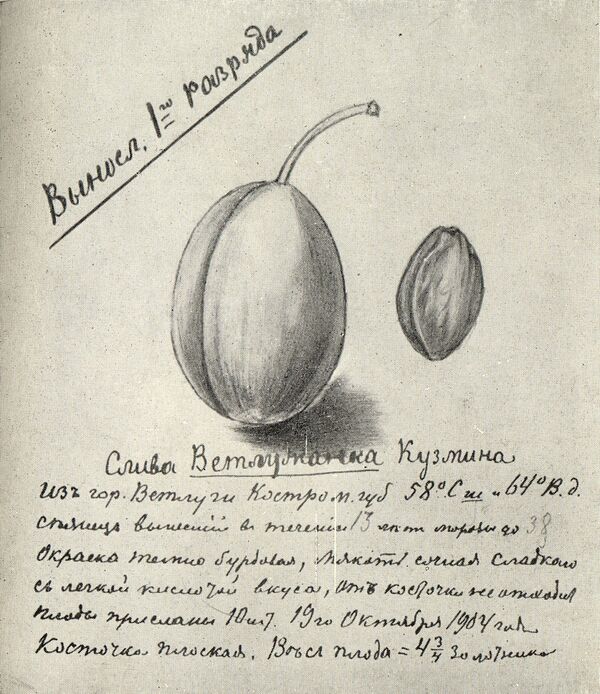 Выносл. 1го разряда
Слива Ветлужанка Кузмина
Изъ гор. Ветлуги Костром. губ 58° С. ш и 64° В. д.
вынесшій в теченіи 13 лѣт морозы до 38
Окраска темно бурдовая, мякоть сочная сладкаго
съ легкой кислотой вкуса, отъ косточки не отходит
плоды присланы 10 шт. 19го Октября 1904 года
Косточка плоская. Вѣсъ плода = 4 3/4 золотника